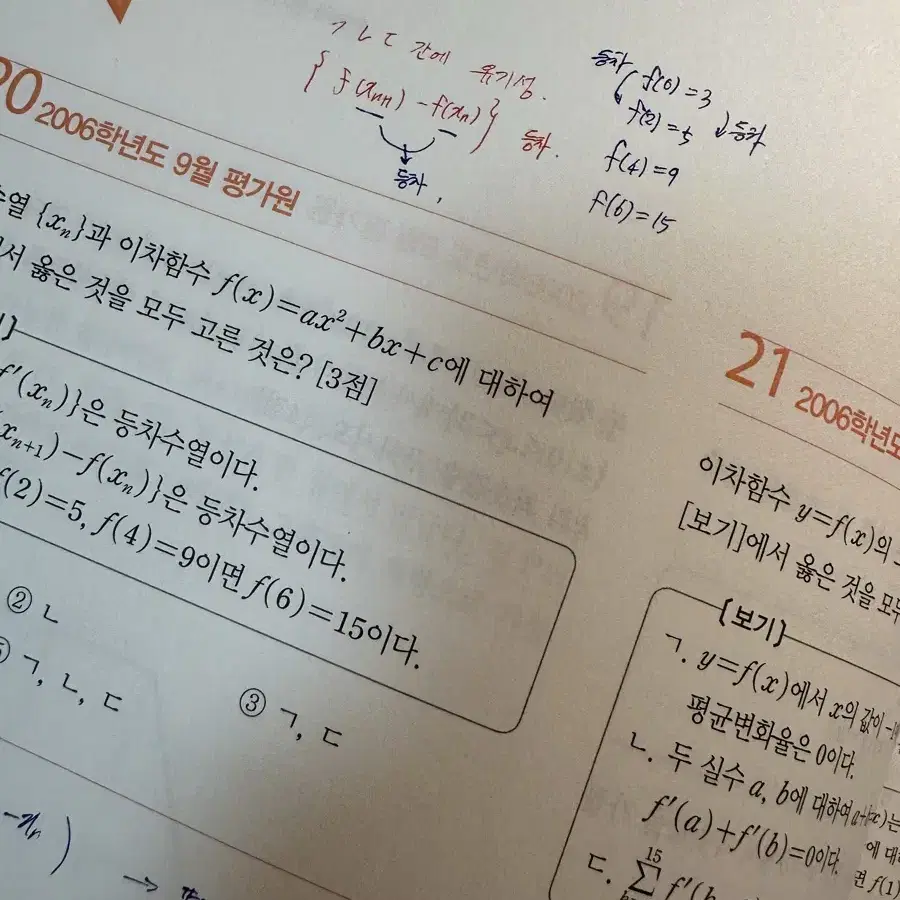 ㄱ ㄴ ㄷ 간에 유기성.
{ f(xₙ₊₁) - f(xₙ) } 등차.
등차,
등차 f(0)=3
f(2)=5 등차
f(4)=9
f(6)=15
20 2006학년도 9월 평가원
수열 {xₙ}과 이차함수 f(x)=ax²+bx+c에 대하여
서 옳은 것을 모두 고른 것은? [3점]
f′(xₙ)}은 등차수열이다.
xₙ₊₁)-f(xₙ)}은 등차수열이다.
f(2)=5, f(4)=9이면 f(6)=15이다.
② ㄴ
③ ㄱ, ㄷ
⑤ ㄱ, ㄴ, ㄷ
-xₙ )
→
21 2006학년도
이차함수 y=f(x)의
[보기]에서 옳은 것을 모두
[보기]
ㄱ. y=f(x)에서 x의 값이
평균변화율은 0이다.
ㄴ. 두 실수 a, b에 대하여
f′(a)+f′(b)=0이다.
ㄷ. 15 ∑ f′(
에 대
면 f(1)